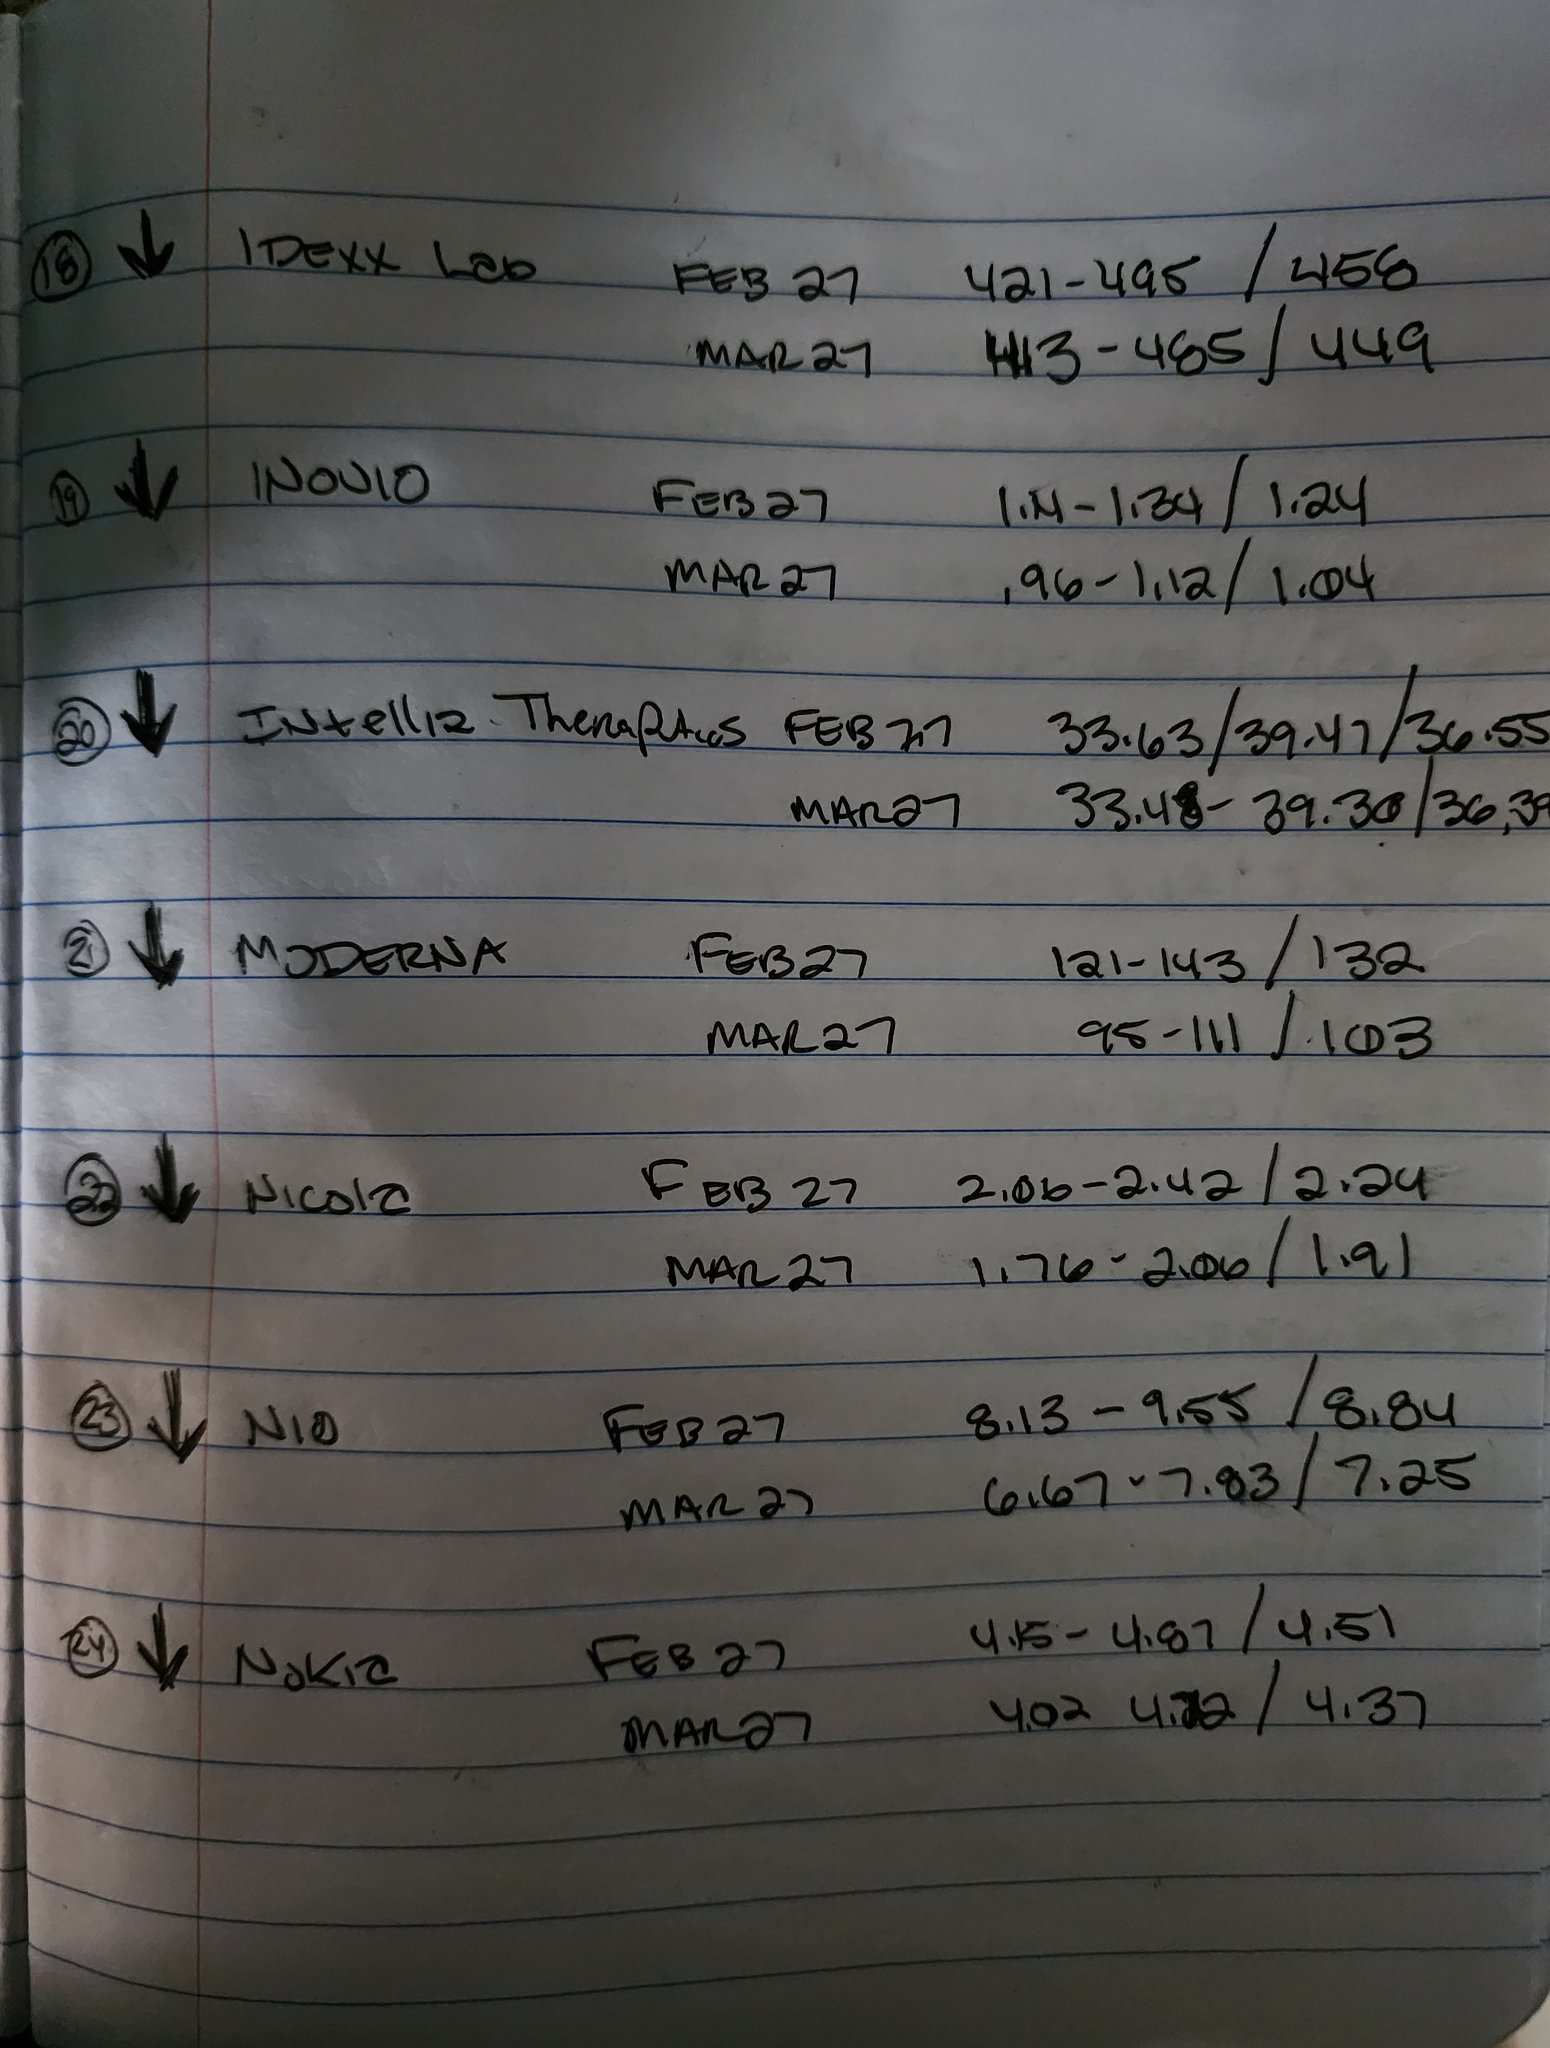 18 ↓ IDEXX Lab FEB 27 421-495 / 458
MAR 27 413-485 / 449
19 ↓ INOVIO FEB 27 1.14-1.34 / 1.24
MAR 27 .96-1.12 / 1.04
20 ↓ INtellia Theraptics FEB 27 33.63/39.47/36.55
MAR 27 33.48-39.30/36.39
21 ↓ MODERNA FEB 27 121-143 / 132
MAR 27 95-111 / 103
22 ↓ Nicola FEB 27 2.06-2.42 / 2.24
MAR 27 1.76-2.06 / 1.91
23 ↓ NIO FEB 27 8.13-9.55 / 8.84
MAR 27 6.67-7.83 / 7.25
24 ↓ Nokia FEB 27 4.15-4.87 / 4.51
MAR 27 4.02 4.72 / 4.37